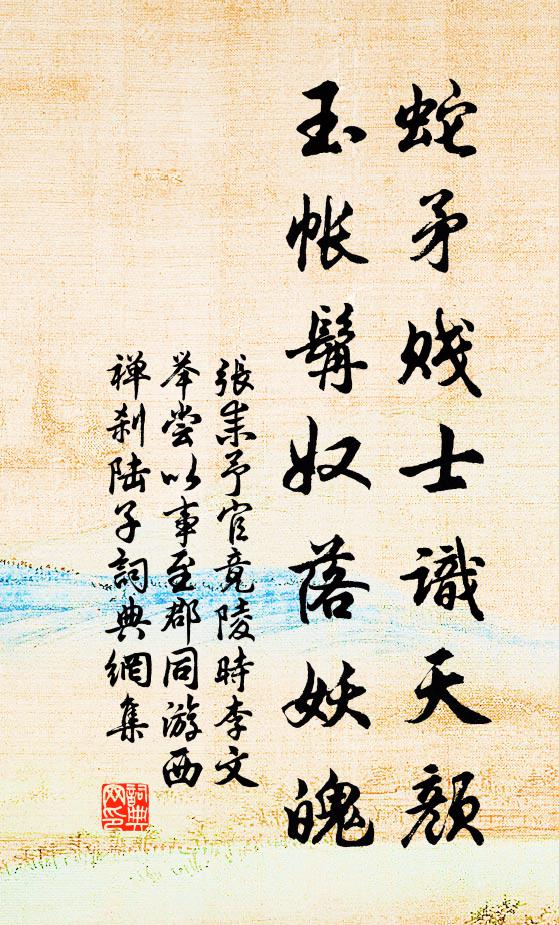 蛇矛贱士識天颜
玉帐髯奴落妖魄
張耒予官竟陵時李文
举尝以事至郡同游西
禅刹陆子詞典網集
詞典网印